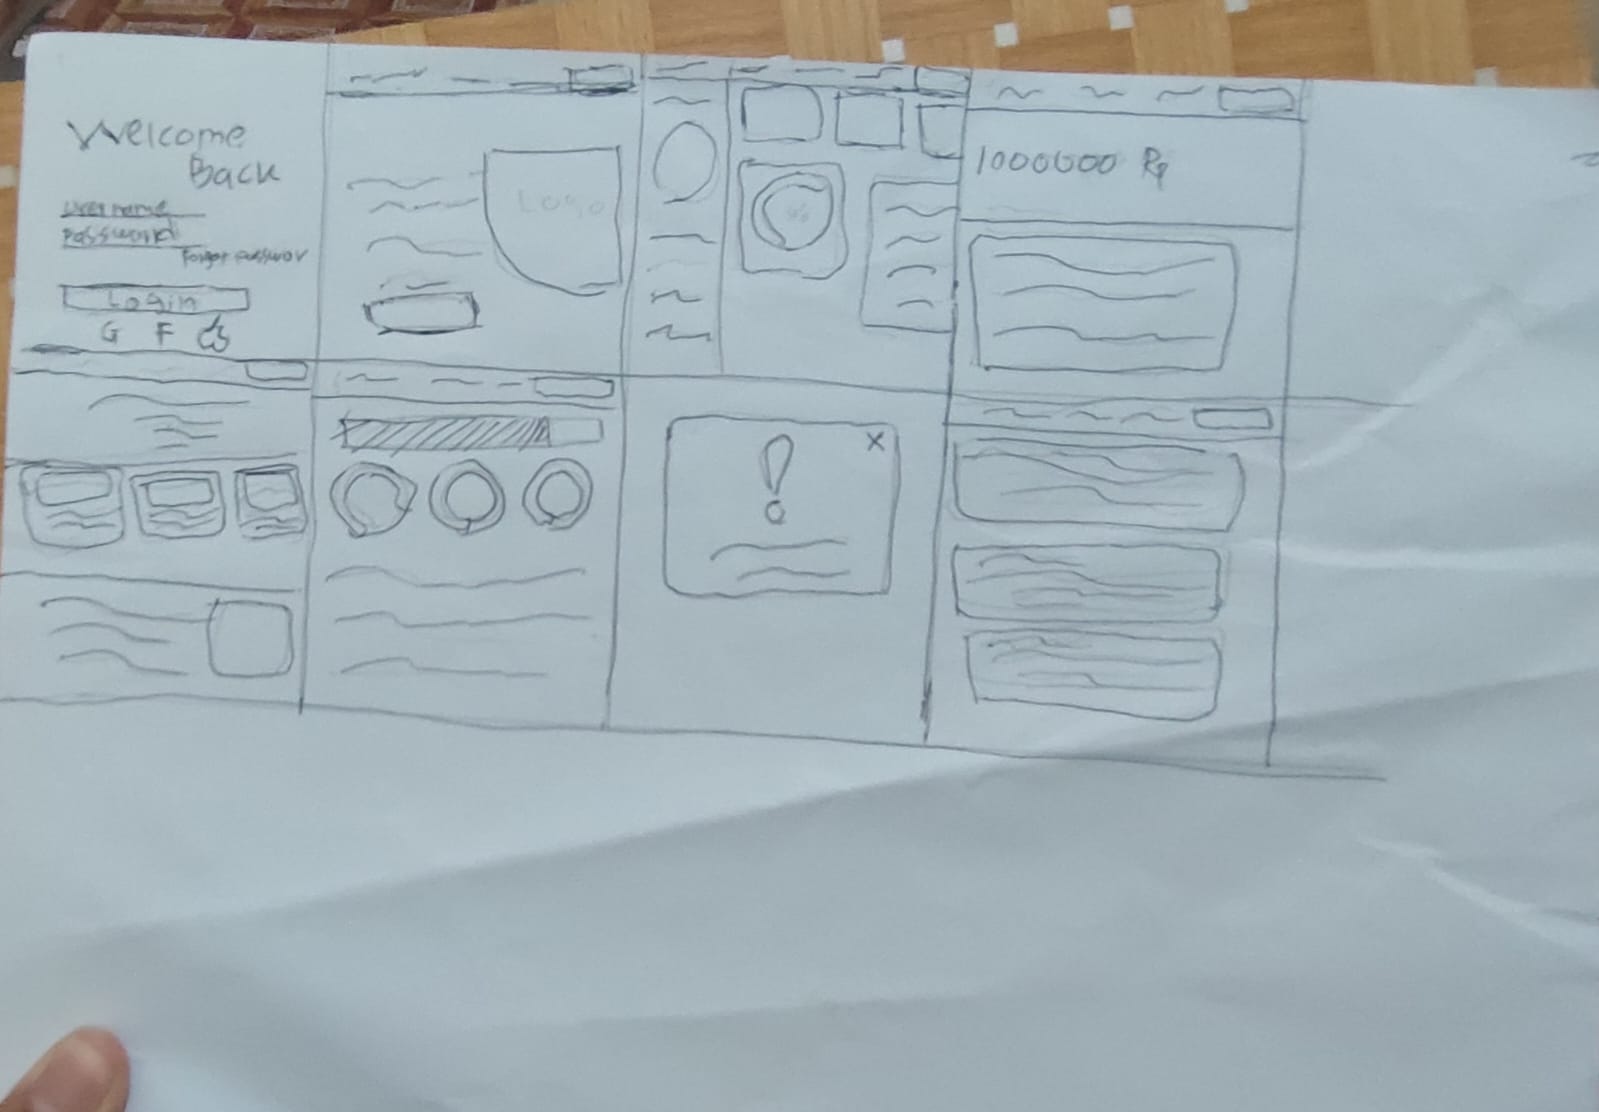 Welcome
Back
username
Password
Forgot passwor
Login
G F
Logo
%
1000000 Rp
X
!